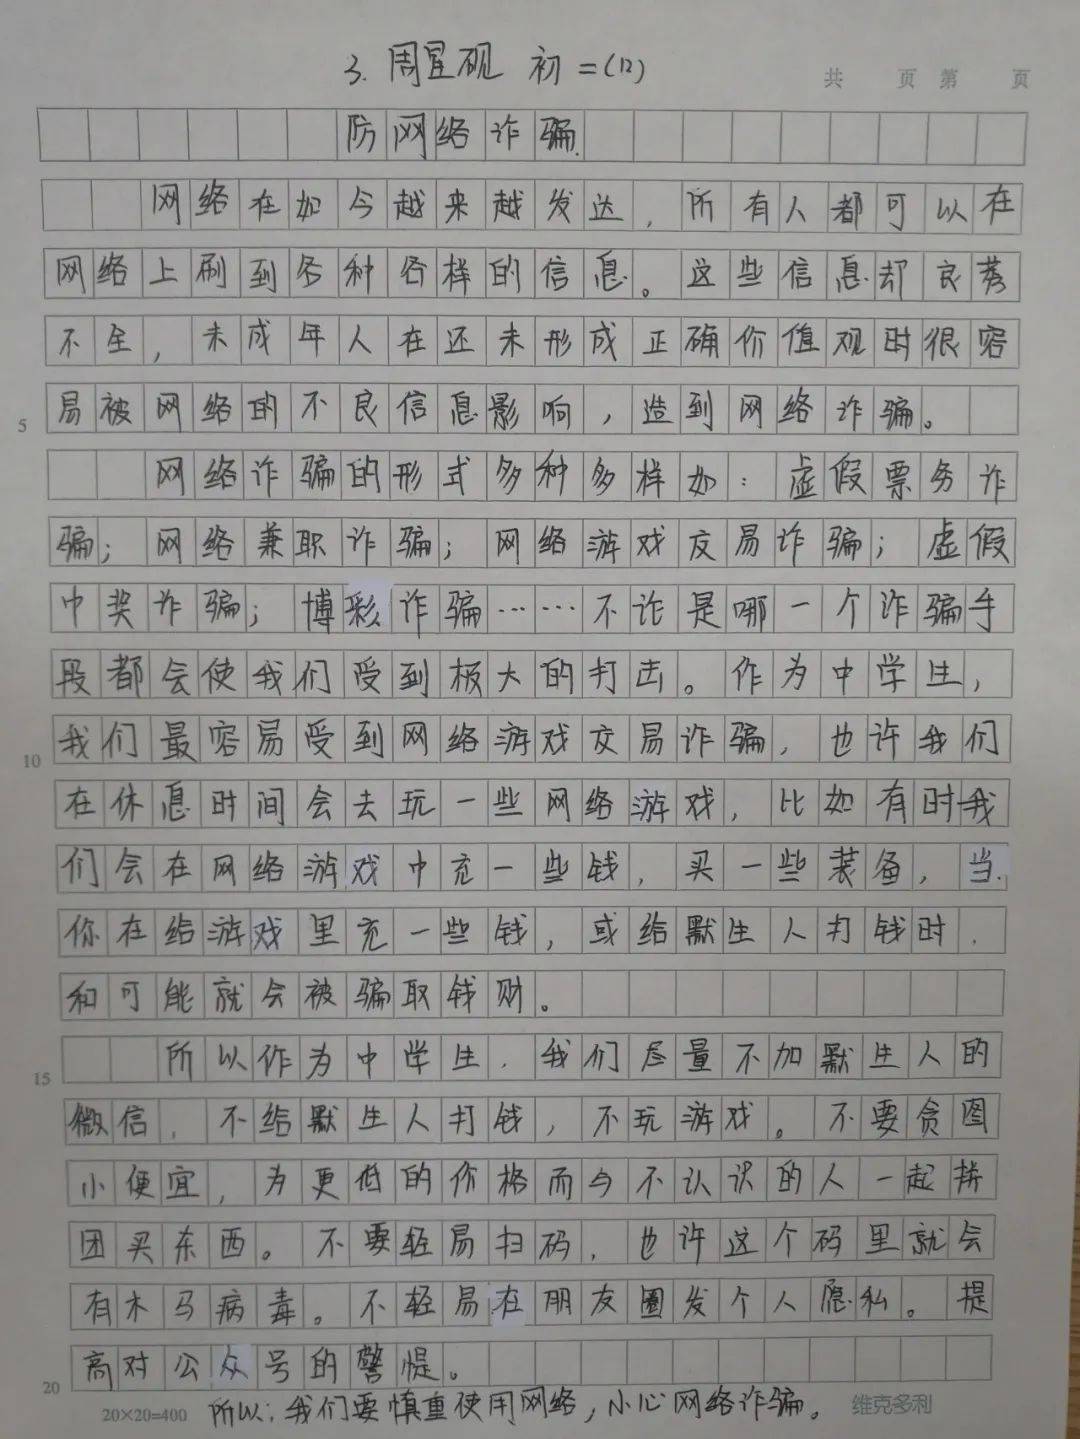 3. 周星砚 初二(12)
共 页 第 页
防网络诈骗.
网络在如今越来越发达，所有人都可以在
网络上刷到各种各样的信息。这些信息却良莠
不全，未成年人在还未形成正确价值观时很容
5 易被网络的不良信息影响，造到网络诈骗。
网络诈骗的形式多种多样如：虚假票务诈
骗；网络兼职诈骗；网络游戏交易诈骗；虚假
中奖诈骗；博彩诈骗……不论是哪一个诈骗手
段都会使我们受到极大的打击。作为中学生，
10 我们最容易受到网络游戏交易诈骗，也许我们
在休息时间会去玩一些网络游戏，比如有时我
们会在网络游戏中充一些钱，买一些装备，当
你在给游戏里充一些钱，或给默生人打钱时，
和可能就会被骗取钱财。
15 所以作为中学生，我们尽量不加默生人的
微信，不给默生人打钱，不玩游戏。不要贪图
小便宜，为更低的价格而今不认识的人一起拼
团买东西。不要轻易扫码，也许这个码里就会
有木马病毒。不轻易在朋友圈发个人隐私。提
20 高对公众号的警惕。
20×20=400 所以：我们要慎重使用网络，小心网络诈骗。 维克多利